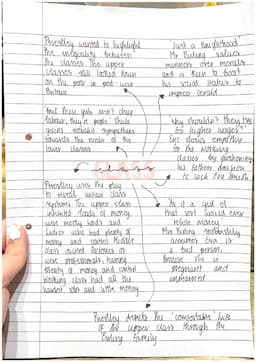 Priestley wanted to highlight
the inequality between
the classes. The upper
classes still looked down
on the poor in post war
Britain
'Just a knighthood'
Mr Birling values
manners over morals
and is keen to boost
his social status to
impress Gerald
'but these girls aren't cheap
labour, they're people' Sheila
gains socialist sympathies
towards the needs of the
lower classes
'Why shouldn't they try
for higher wages?'
Eric shows sympathy
for the working
classes by questioning
his fathers decision
to sack Eva Smith
CLASS
class
Priestley uses the play
to reveal unfair class
systems. The upper class
inherited loads of money,
were mostly lords and
ladies who had plenty of
money and control. Middle
class owned factories or
were professionals, having
plenty of money and control
Working class had all the
hardest jobs and little money
'As if a girl of
that sort would ever
refuse money'
Mrs Birling
assumes Eva is
a bad person,
because she is
pregnant and
unmarried
Priestley depicts the 'comfortable' life
of the upper class through the
Birling family